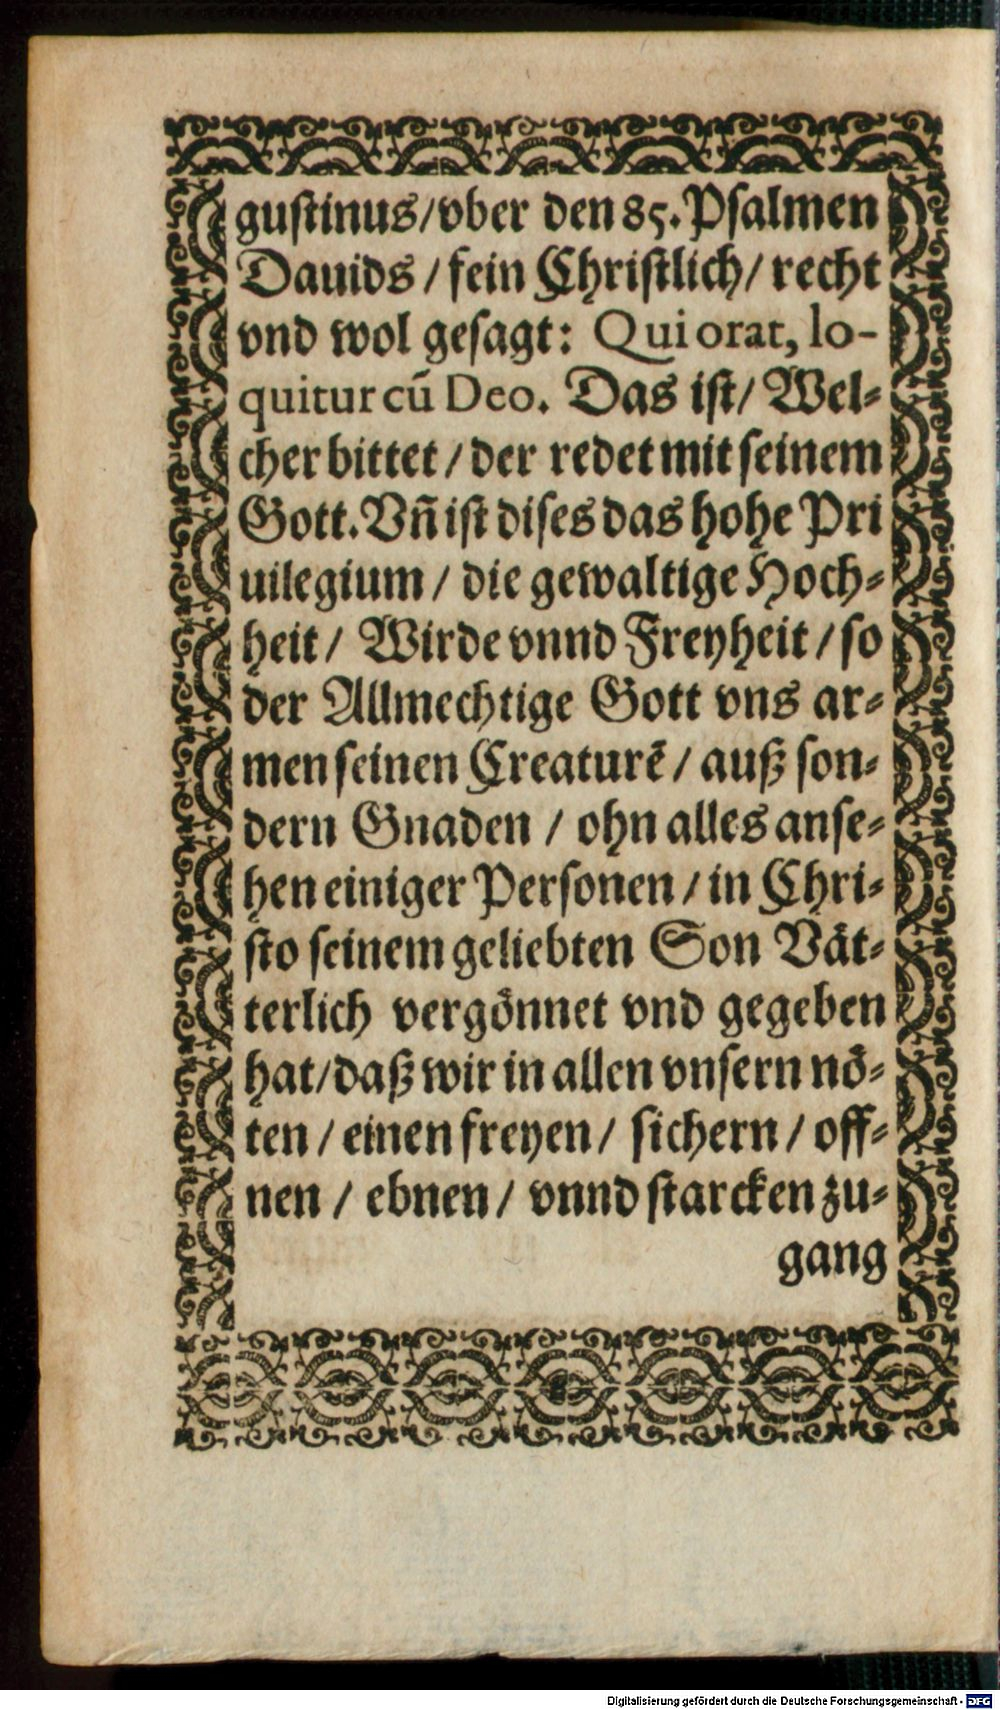 gustinus/vber den 85. Psalmen
Dauids / fein Christlich/ recht
vnd wol gesagt: Qui orat, lo-
quitur cū Deo. Das ist/ Wel-
cher bittet / der redet mit seinem
Gott. Vñ ist dises das hohe Pri
uilegium / die gewaltige Hoch-
heit/ Wirde vnnd Freyheit / so
der Allmechtige Gott vns ar-
men seinen Creaturẽ / auß son-
dern Gnaden / ohn alles anse-
hen einiger Personen / in Chri-
sto seinem geliebten Son Vät-
terlich vergönnet vnd gegeben
hat/daß wir in allen vnsern nö-
ten / einen freyen/ sichern / off-
nen / ebnen/ vnnd starcken zu-
gang
Digitalisierung gefördert durch die Deutsche Forschungsgemeinschaft - DFG